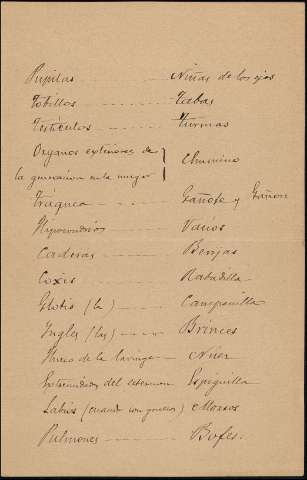 Pupilas ---- Niñas de los ojos
Tobillos ---- Tabas
Testículos ---- Turmas
Organos exteriores de
la generacion en la mujer } Chumino
Tráquea ---- Gañote y Gañon
Hipocondrios ---- Vacíos
Caderas ---- Berijas
Coxis ---- Rabadilla
Glotis (la) ---- Campanilla
Ingles (las) ---- Brinces
Hueso de la laringe -- Nuez
Extremidad del esternon Espiguilla
Labios (cuando son gruesos) Morros
Pulmones ---- Bofes.